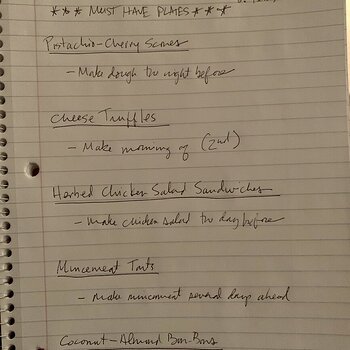 *** MUST HAVE PLATES ***
Pistachio-Cherry Scones
- Make dough the night before
Cheese Truffles
- Make morning of (2nd)
Herbed Chicken Salad Sandwiches
- Make chicken salad the day before
Mincemeat Tarts
- Make mincemeat several days ahead
Coconut-Almond Bon-Bons